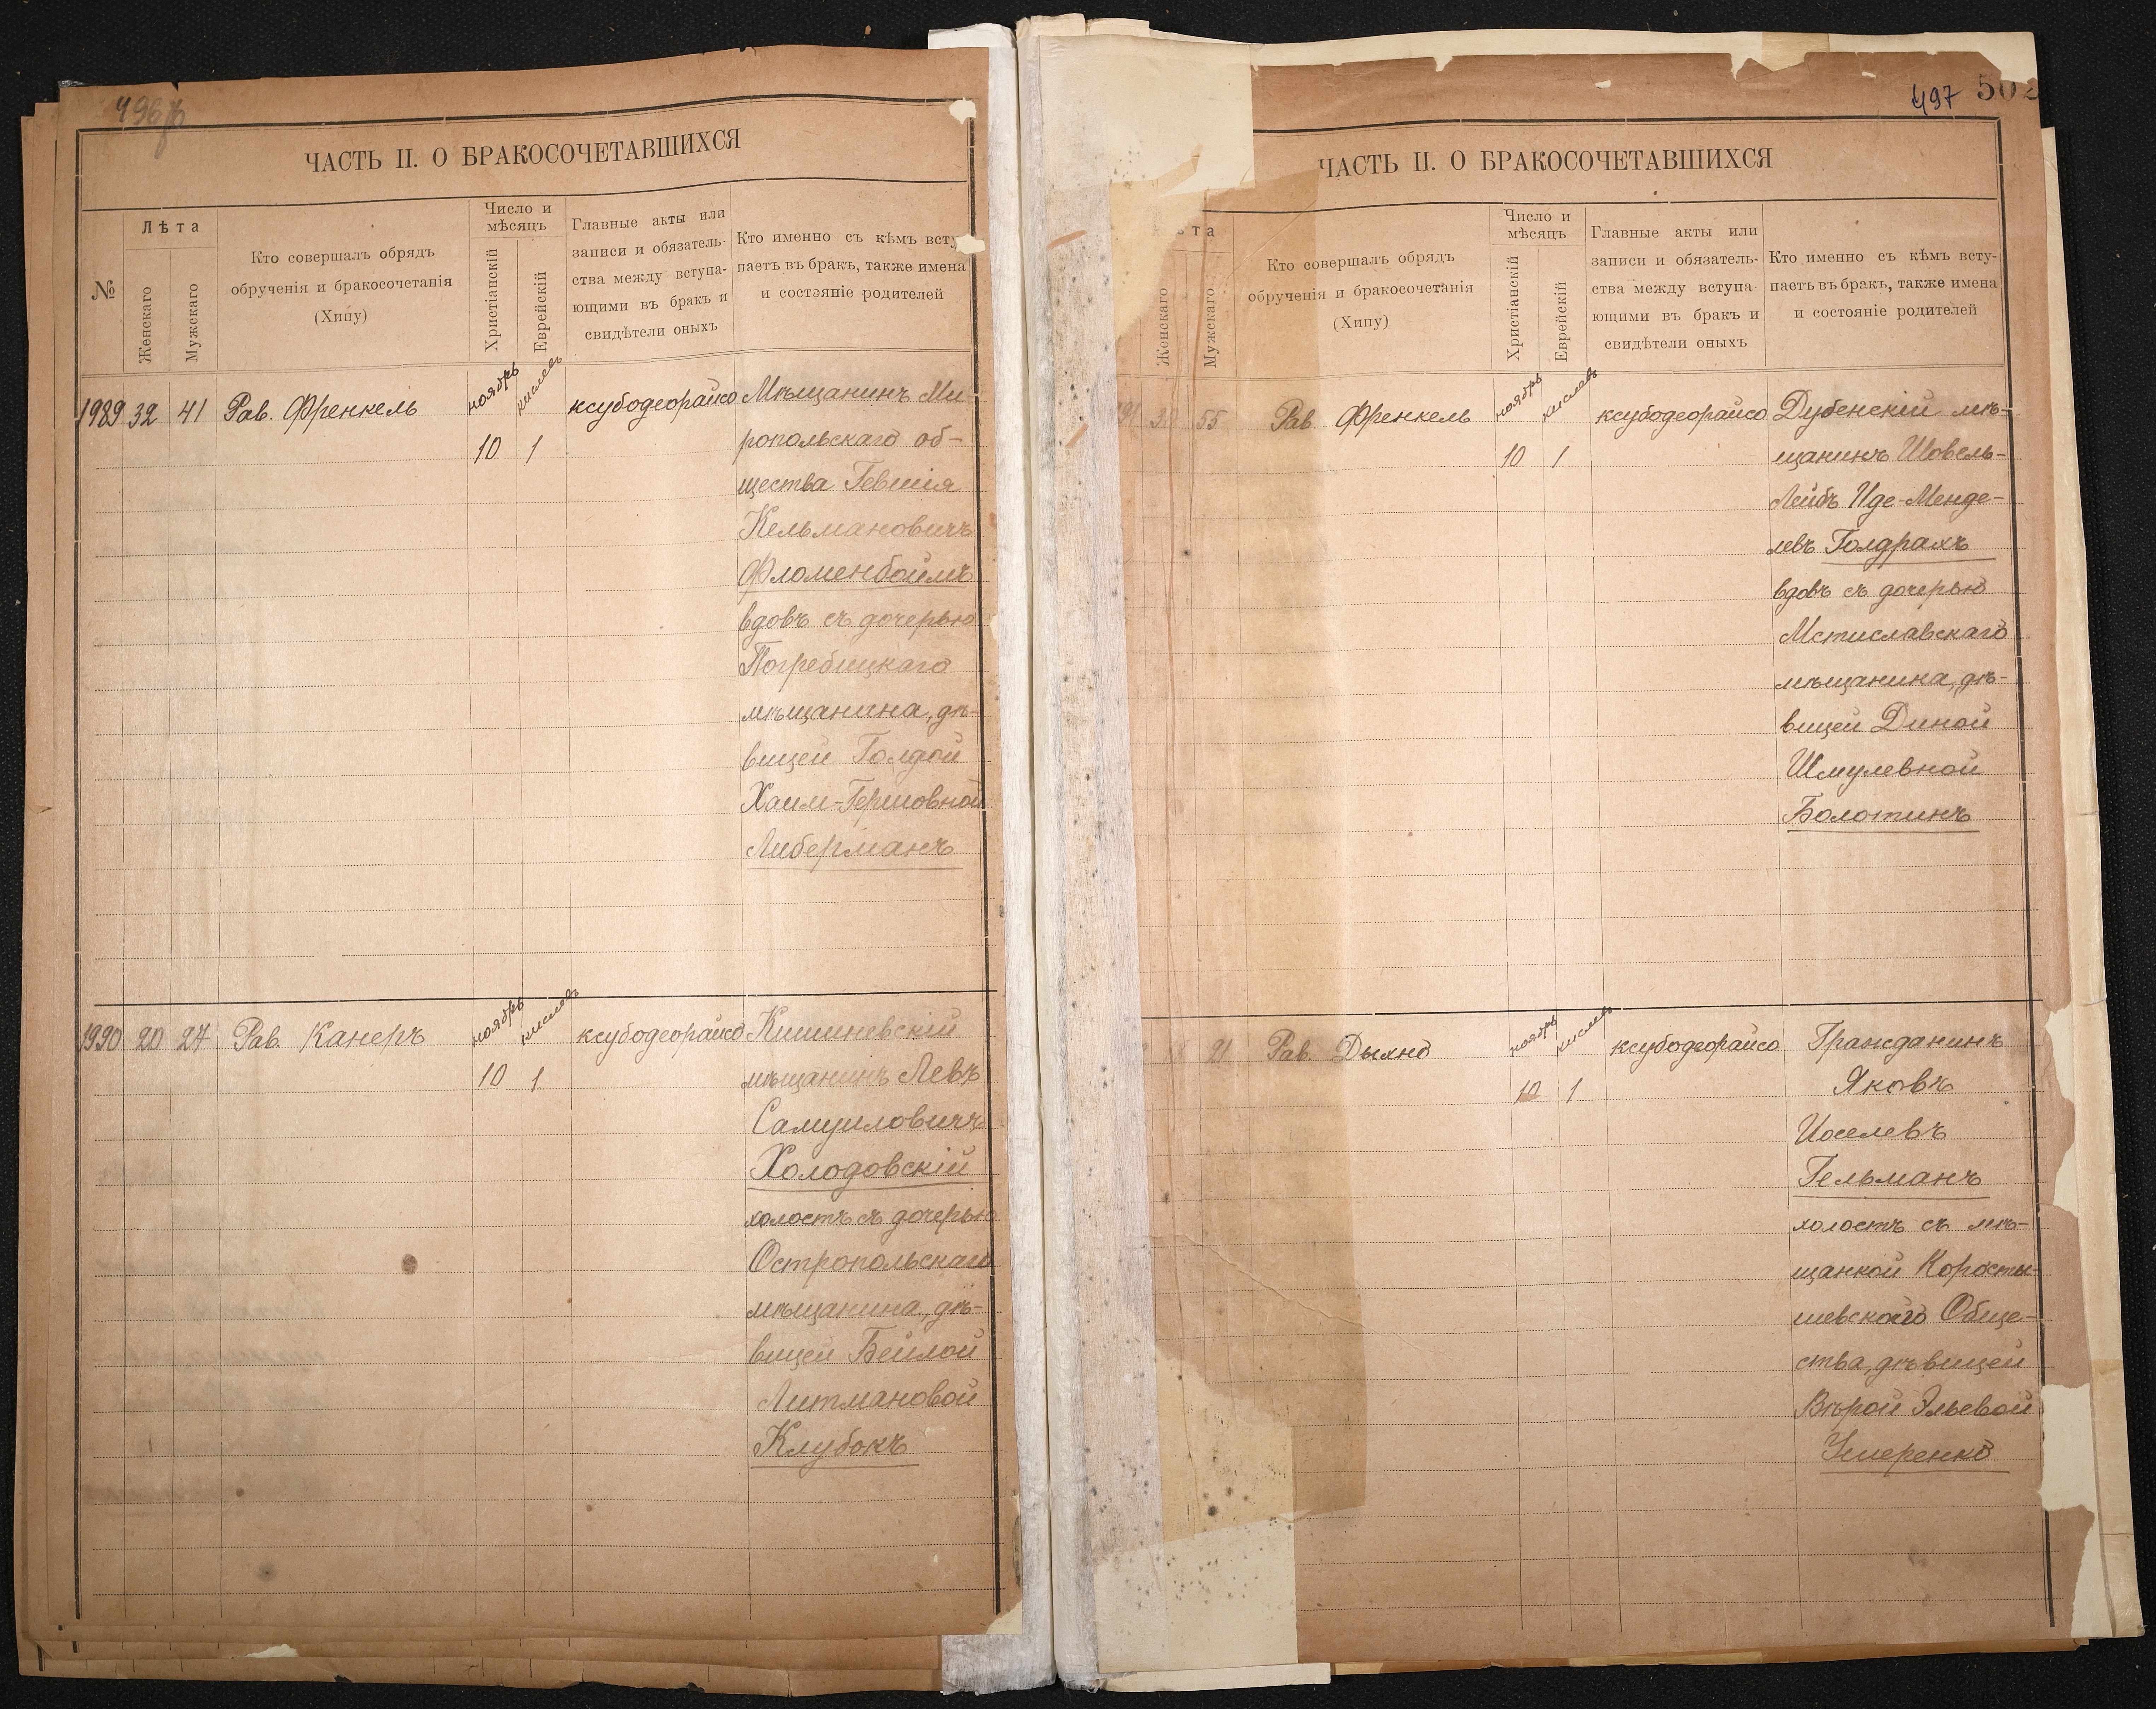 496
ЧАСТЬ II. О БРАКОСОЧЕТАВШИХСЯ
№
Лѣта
Женскаго
Мужскаго
Кто совершалъ обрядъ
обрученія и бракосочетанія
(Хипу)
Число и
мѣсяцъ
Христіанскій
Еврейскій
Главные акты или
записи и обязатель-
ства между вступа-
ющими въ бракъ и
свидѣтели оныхъ
Кто именно съ кѣмъ всту
паетъ въ бракъ, также имена
и состояніе родителей
1989 32 41 Рав. Френкель ноябрь кислевъ ксубодеорайсо Мѣщанинъ Ми
10 1 ропольскаго об-
щества Гевшія
Кельмановичъ
Фломенбоймъ
вдовъ съ дочерью
Погребицкаго
мѣщанина, дѣ-
вицей Голдой
Хаим-Гершовной
Либерманъ
1990 20 27 Рав. Канеръ ноябрь кислевъ ксубодеорайсо Кишиневскій
10 1 мѣщанинъ Левъ
Самуиловичъ
Холодовскій
холостъ съ дочерью
Остропольскаго
мѣщанина, дѣ-
вицей Бейлой
Литмановой
Клубокъ
497 502
ЧАСТЬ II. О БРАКОСОЧЕТАВШИХСЯ
та
Женскаго
Мужскаго
Кто совершалъ обрядъ
обрученія и бракосочетанія
(Хипу)
Число и
мѣсяцъ
Христіанскій
Еврейскій
Главные акты или
записи и обязатель-
ства между вступа-
ющими въ бракъ и
свидѣтели оныхъ
Кто именно съ кѣмъ всту-
паетъ въ бракъ, также имена
и состояніе родителей
55 Рав. Френкель ноябрь кислевъ ксубодеорайсо Дубенскій мѣ-
10 1 щанинъ Шовель-
Лейбъ Иде-Менде-
левъ Голдрахъ
вдовъ съ дочерью
Мстиславскаго
мѣщанина, дѣ-
вицей Диной
Шмулевной
Болотинъ
21 Рав. Дыхно ноябрь кислевъ ксубодеорайсо Гражданинъ
10 1 Яковъ
Иоселевъ
Гельманъ
холостъ съ мѣ-
щанкой Коросты-
шевскаго Обще-
ства, дѣвицей
Вѣрой Эльевой
Умеренко